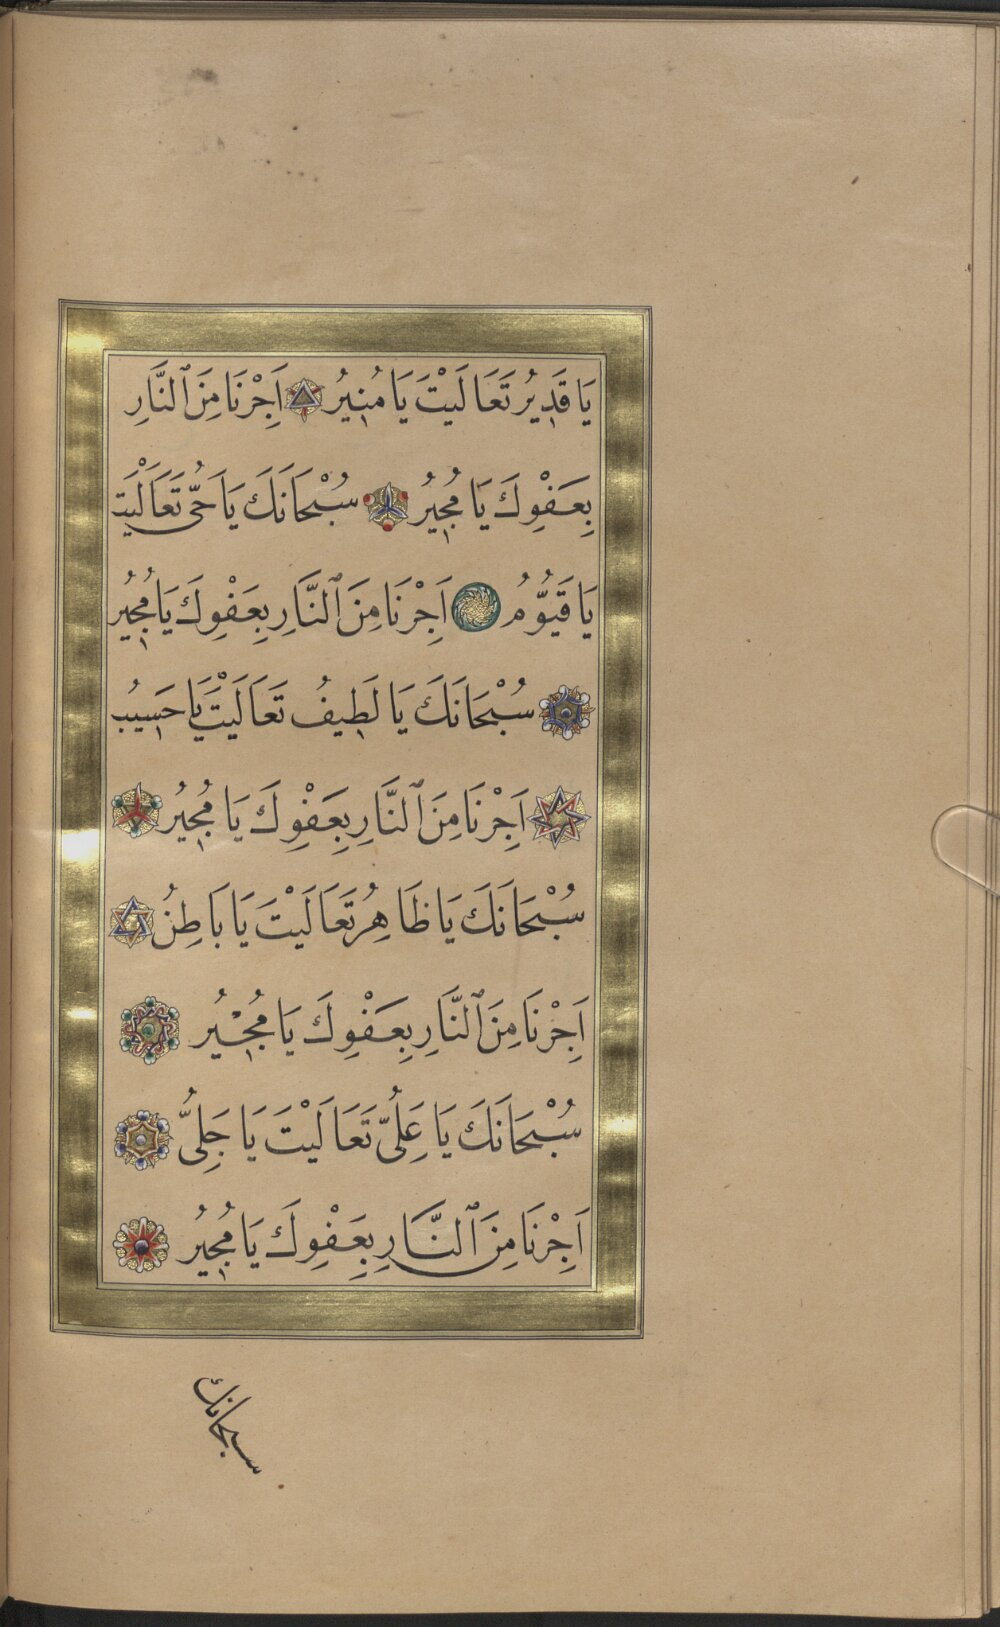 يَا قَدِيرُ تَعَالَيْتَ يَا مُنِيرُ اَجِرْنَا مِنَ ٱلنَّارِ
بِعَفْوِكَ يَا مُجِيرُ سُبْحَانَكَ يَا حَىُّ تَعَالَيْتَ
يَا قَيُّومُ اَجِرْنَا مِنَ ٱلنَّارِ بِعَفْوِكَ يَا مُجِيرُ
سُبْحَانَكَ يَا لَطِيفُ تَعَالَيْتَ يَا حَسِيبُ
اَجِرْنَا مِنَ ٱلنَّارِ بِعَفْوِكَ يَا مُجِيرُ
سُبْحَانَكَ يَا ظَاهِرُ تَعَالَيْتَ يَا بَاطِنُ
اَجِرْنَا مِنَ ٱلنَّارِ بِعَفْوِكَ يَا مُجِيرُ
سُبْحَانَكَ يَا عَلِىُّ تَعَالَيْتَ يَا جَلِىُّ
اَجِرْنَا مِنَ ٱلنَّارِ بِعَفْوِكَ يَا مُجِيرُ
سبحانك